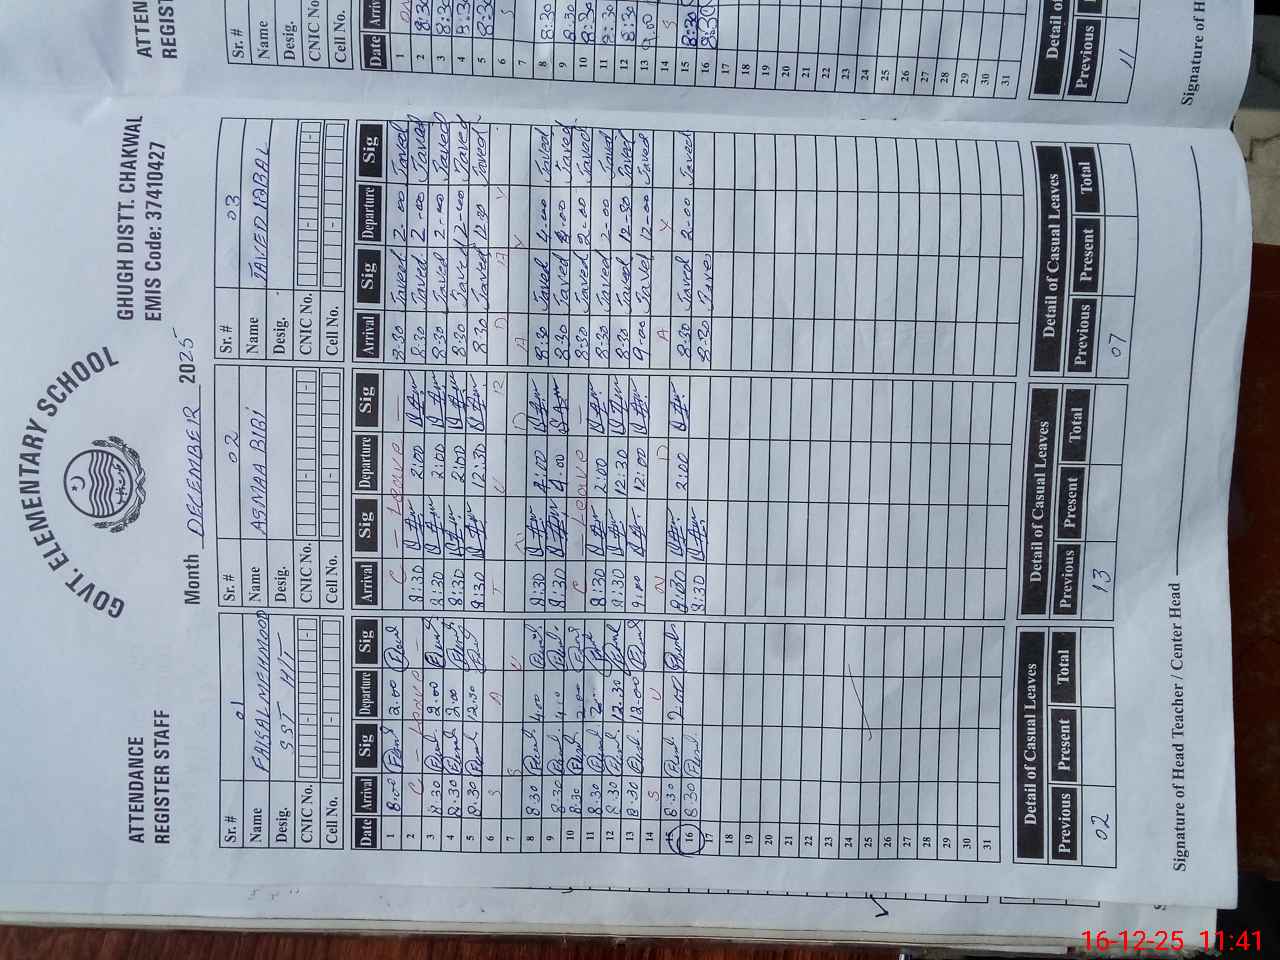 GOVT. ELEMENTARY SCHOOL
ATTENDANCE
REGISTER STAFF
GHUGH DISTT. CHAKWAL
EMIS Code: 37410427
Month DECEMBER 2025
Sr. # 01 Sr. # 02 Sr. # 03
Name FAISAL MEHMOOD Name ASMAA BIBI Name JAVED IQBAL
Desig. SST H/T Desig. Desig.
CNIC No. CNIC No. CNIC No.
Cell No. Cell No.
Date Arrival Sig Departure Sig Arrival Sig Departure Sig Arrival Sig Departure Sig
1 8:00 2:00 C - Leave - 8:30 Javed 2-00 Javed
2 C - Leave - 8:30 2:00 8:30 Javed 2-00 Javed
3 8:30 2:00 8:30 2:00 8:30 Javed 2-00 Javed
4 8:30 2:00 8:30 2:00 8:30 Javed 2-00 Javed
5 8:30 12:30 8:30 12:30 8:30 Javed 12:30 Javed
6 S A T U R D A Y
7 S U N D A Y
8 8:30 4:00 8:30 4:00 8:30 Javed 4-00 Javed
9 8:30 4:00 8:30 4:00 8:30 Javed 4-00 Javed
10 8:30 2:00 C - Leave - 8:30 Javed 2-00 Javed
11 8:30 2:00 8:30 2:00 8:30 Javed 2-00 Javed
12 8:30 12:30 8:30 12:30 8:30 Javed 12-30 Javed
13 8:30 12:00 9:00 12:00 9-00 Javed 12-00 Javed
14 S U N D A Y
15 8:30 2:00 8:30 2:00 8:30 Javed 2-00 Javed
16 8:30 8:30 8:30 Javed
17
18
19
20
21
22
23
24
25
26
27
28
29
30
31
Detail of Casual Leaves Detail of Casual Leaves Detail of Casual Leaves
Previous Present Total Previous Present Total Previous Present Total
02 13 07
Signature of Head Teacher / Center Head
ATTEN
REGIST
Sr. #
Name
Desig.
CNIC No.
Cell No.
Date
1
2 8:30
3 8:30
4 8:30
5 8:30
6 S
7
8 8:30
9 8:30
10 8:30
11 8:30
12 8:30
13 9:00
14 S
15 8:30
16 8:30
17
18
19
20
21
22
23
24
25
26
27
28
29
30
31
Detail of
Previous
11
Signature of H
16-12-25 11:41